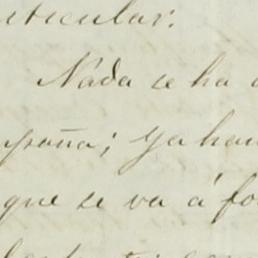 rticular.
Nada se ha
spaña; ya han
que se va á fo